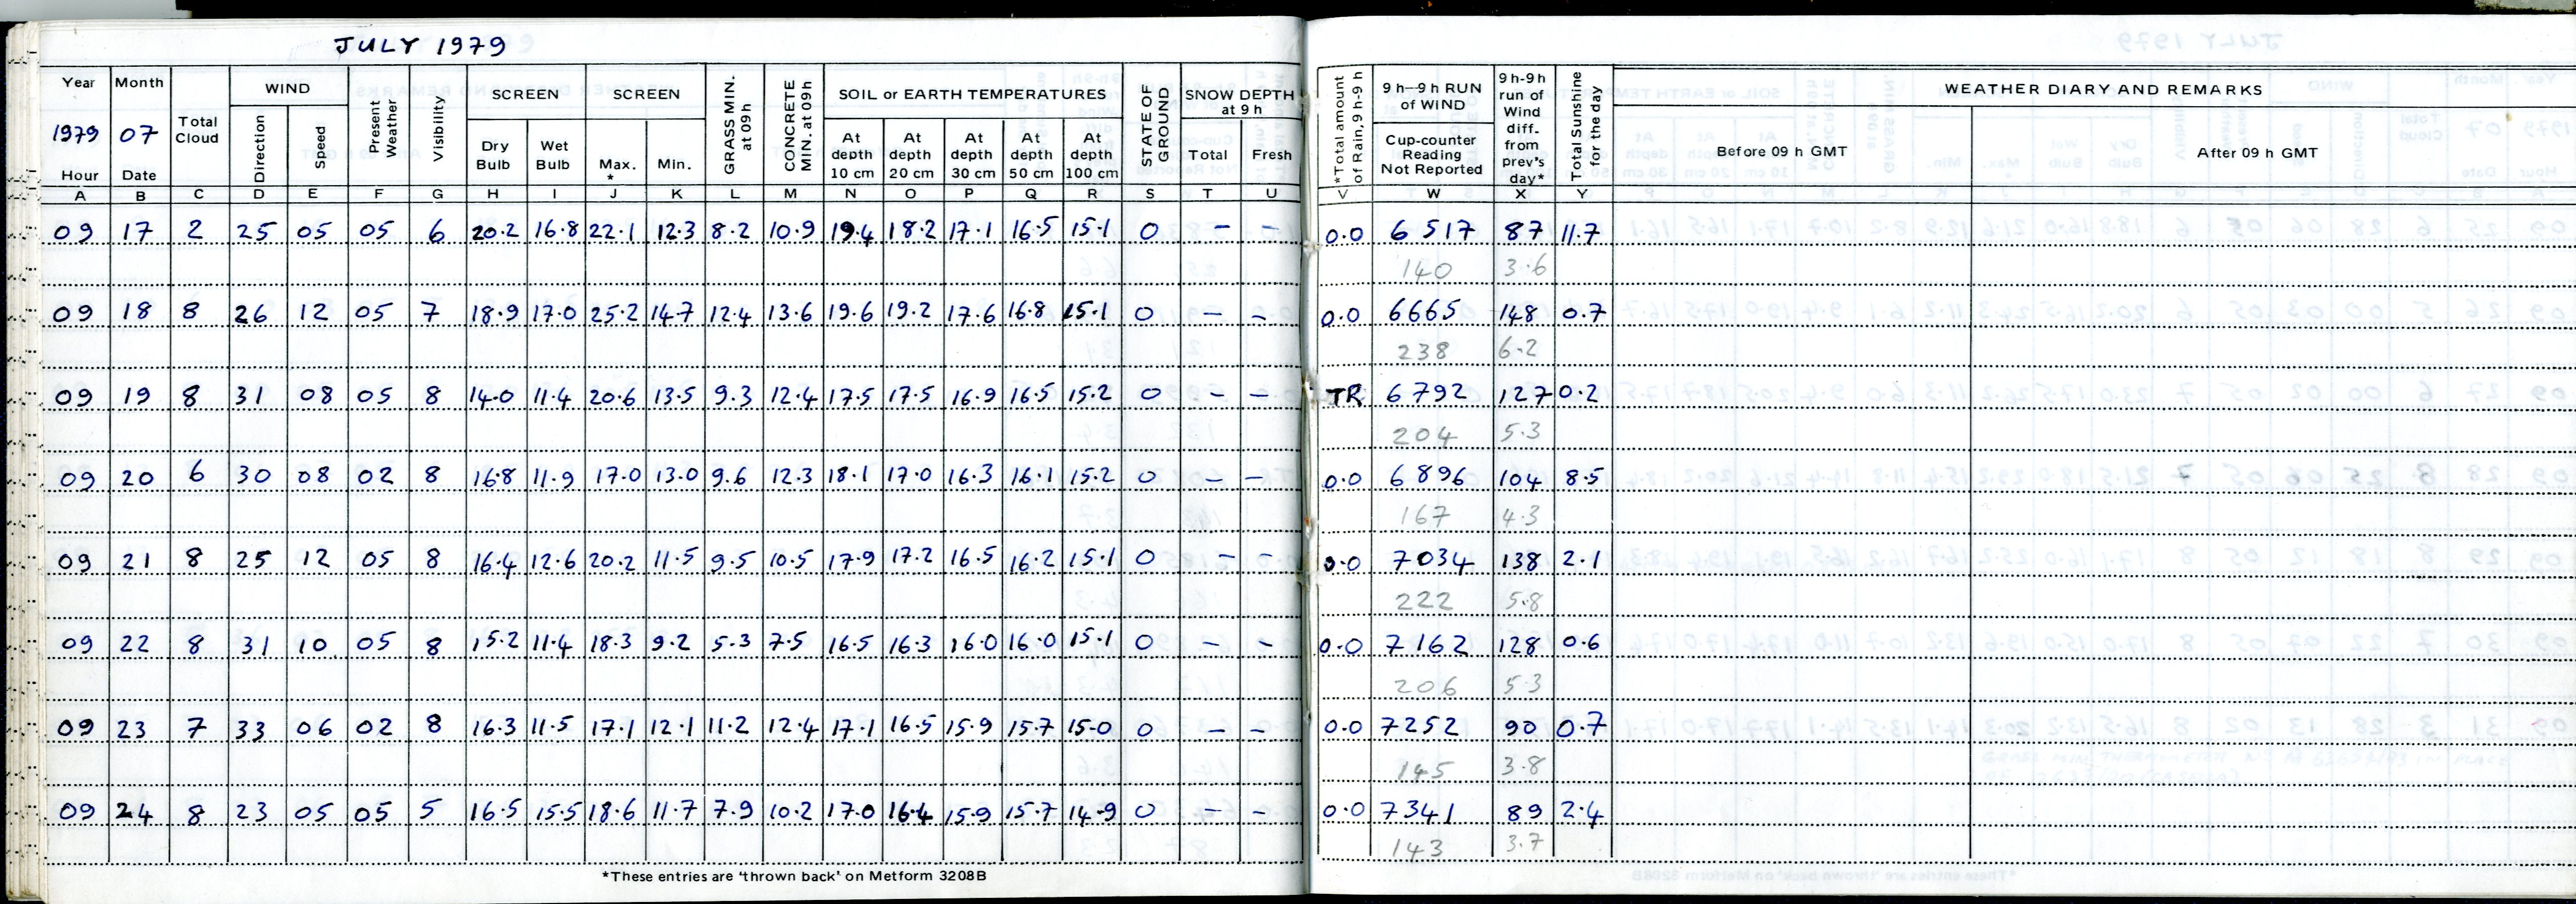 JULY 1979
Year Month Total Cloud WIND Present Weather Visibility SCREEN SCREEN GRASS MIN. at 09h CONCRETE MIN. at 09h SOIL or EARTH TEMPERATURES STATE OF GROUND SNOW DEPTH at 9 h *Total amount of Rain, 9h-9h 9 h—9 h RUN of WIND 9h-9h run of Wind diff. from prev's day* Total Sunshine for the day WEATHER DIARY AND REMARKS
1979 07 Direction Speed Dry Bulb Wet Bulb Max. * Min. At depth 10 cm At depth 20 cm At depth 30 cm At depth 50 cm At depth 100 cm Total Fresh Cup-counter Reading Not Reported Before 09 h GMT After 09 h GMT
Hour Date
A B C D E F G H I J K L M N O P Q R S T U V W X Y
09 17 2 25 05 05 6 20.2 16.8 22.1 12.3 8.2 10.9 19.4 18.2 17.1 16.5 15.1 0 – – 0.0 6517 87 11.7
140 3.6
09 18 8 26 12 05 7 18.9 17.0 25.2 14.7 12.4 13.6 19.6 19.2 17.6 16.8 15.1 0 – – 0.0 6665 148 0.7
238 6.2
09 19 8 31 08 05 8 14.0 11.4 20.6 13.5 9.3 12.4 17.5 17.5 16.9 16.5 15.2 0 – – TR 6792 127 0.2
204 5.3
09 20 6 30 08 02 8 16.8 11.9 17.0 13.0 9.6 12.3 18.1 17.0 16.3 16.1 15.2 0 – – 0.0 6896 104 8.5
167 4.3
09 21 8 25 12 05 8 16.4 12.6 20.2 11.5 9.5 10.5 17.9 17.2 16.5 16.2 15.1 0 – – 0.0 7034 138 2.1
222 5.8
09 22 8 31 10 05 8 15.2 11.4 18.3 9.2 5.3 7.5 16.5 16.3 16.0 16.0 15.1 0 – – 0.0 7162 128 0.6
206 5.3
09 23 7 33 06 02 8 16.3 11.5 17.1 12.1 11.2 12.4 17.1 16.5 15.9 15.7 15.0 0 – – 0.0 7252 90 0.7
145 3.8
09 24 8 23 05 05 5 16.5 15.5 18.6 11.7 7.9 10.2 17.0 16.4 15.9 15.7 14.9 0 – – 0.0 7341 89 2.4
143 3.7
*These entries are 'thrown back' on Metform 3208B